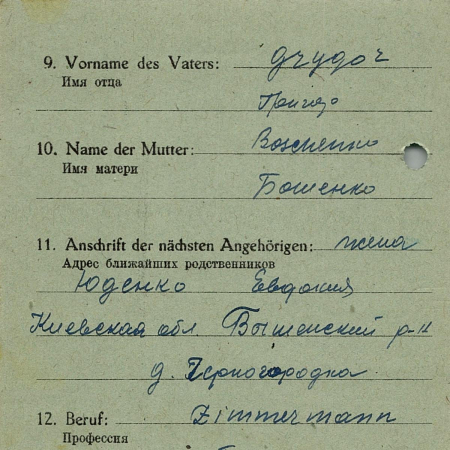 9. Vorname des Vaters:
Имя отца
10. Name der Mutter:
Имя матери Бошенко
11. Anschrift der nächsten Angehörigen: жена
Адрес ближайших родственников
Юденко Евдокия
Киевская обл Вышенский р-н
д. Черногородка
12. Beruf: Zimmermann
Профессия